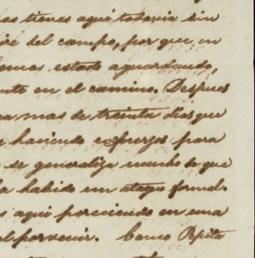 tienes aqui todavia sin
del campo, por que en
hemos estado aguardando,
en el camino. Despues
mas de treinta dias que
haciendo esfuerzos para
se generaliza mucho lo que
habido un ataque formal
aqui pereciendo en una
porvenir. Como Pepita